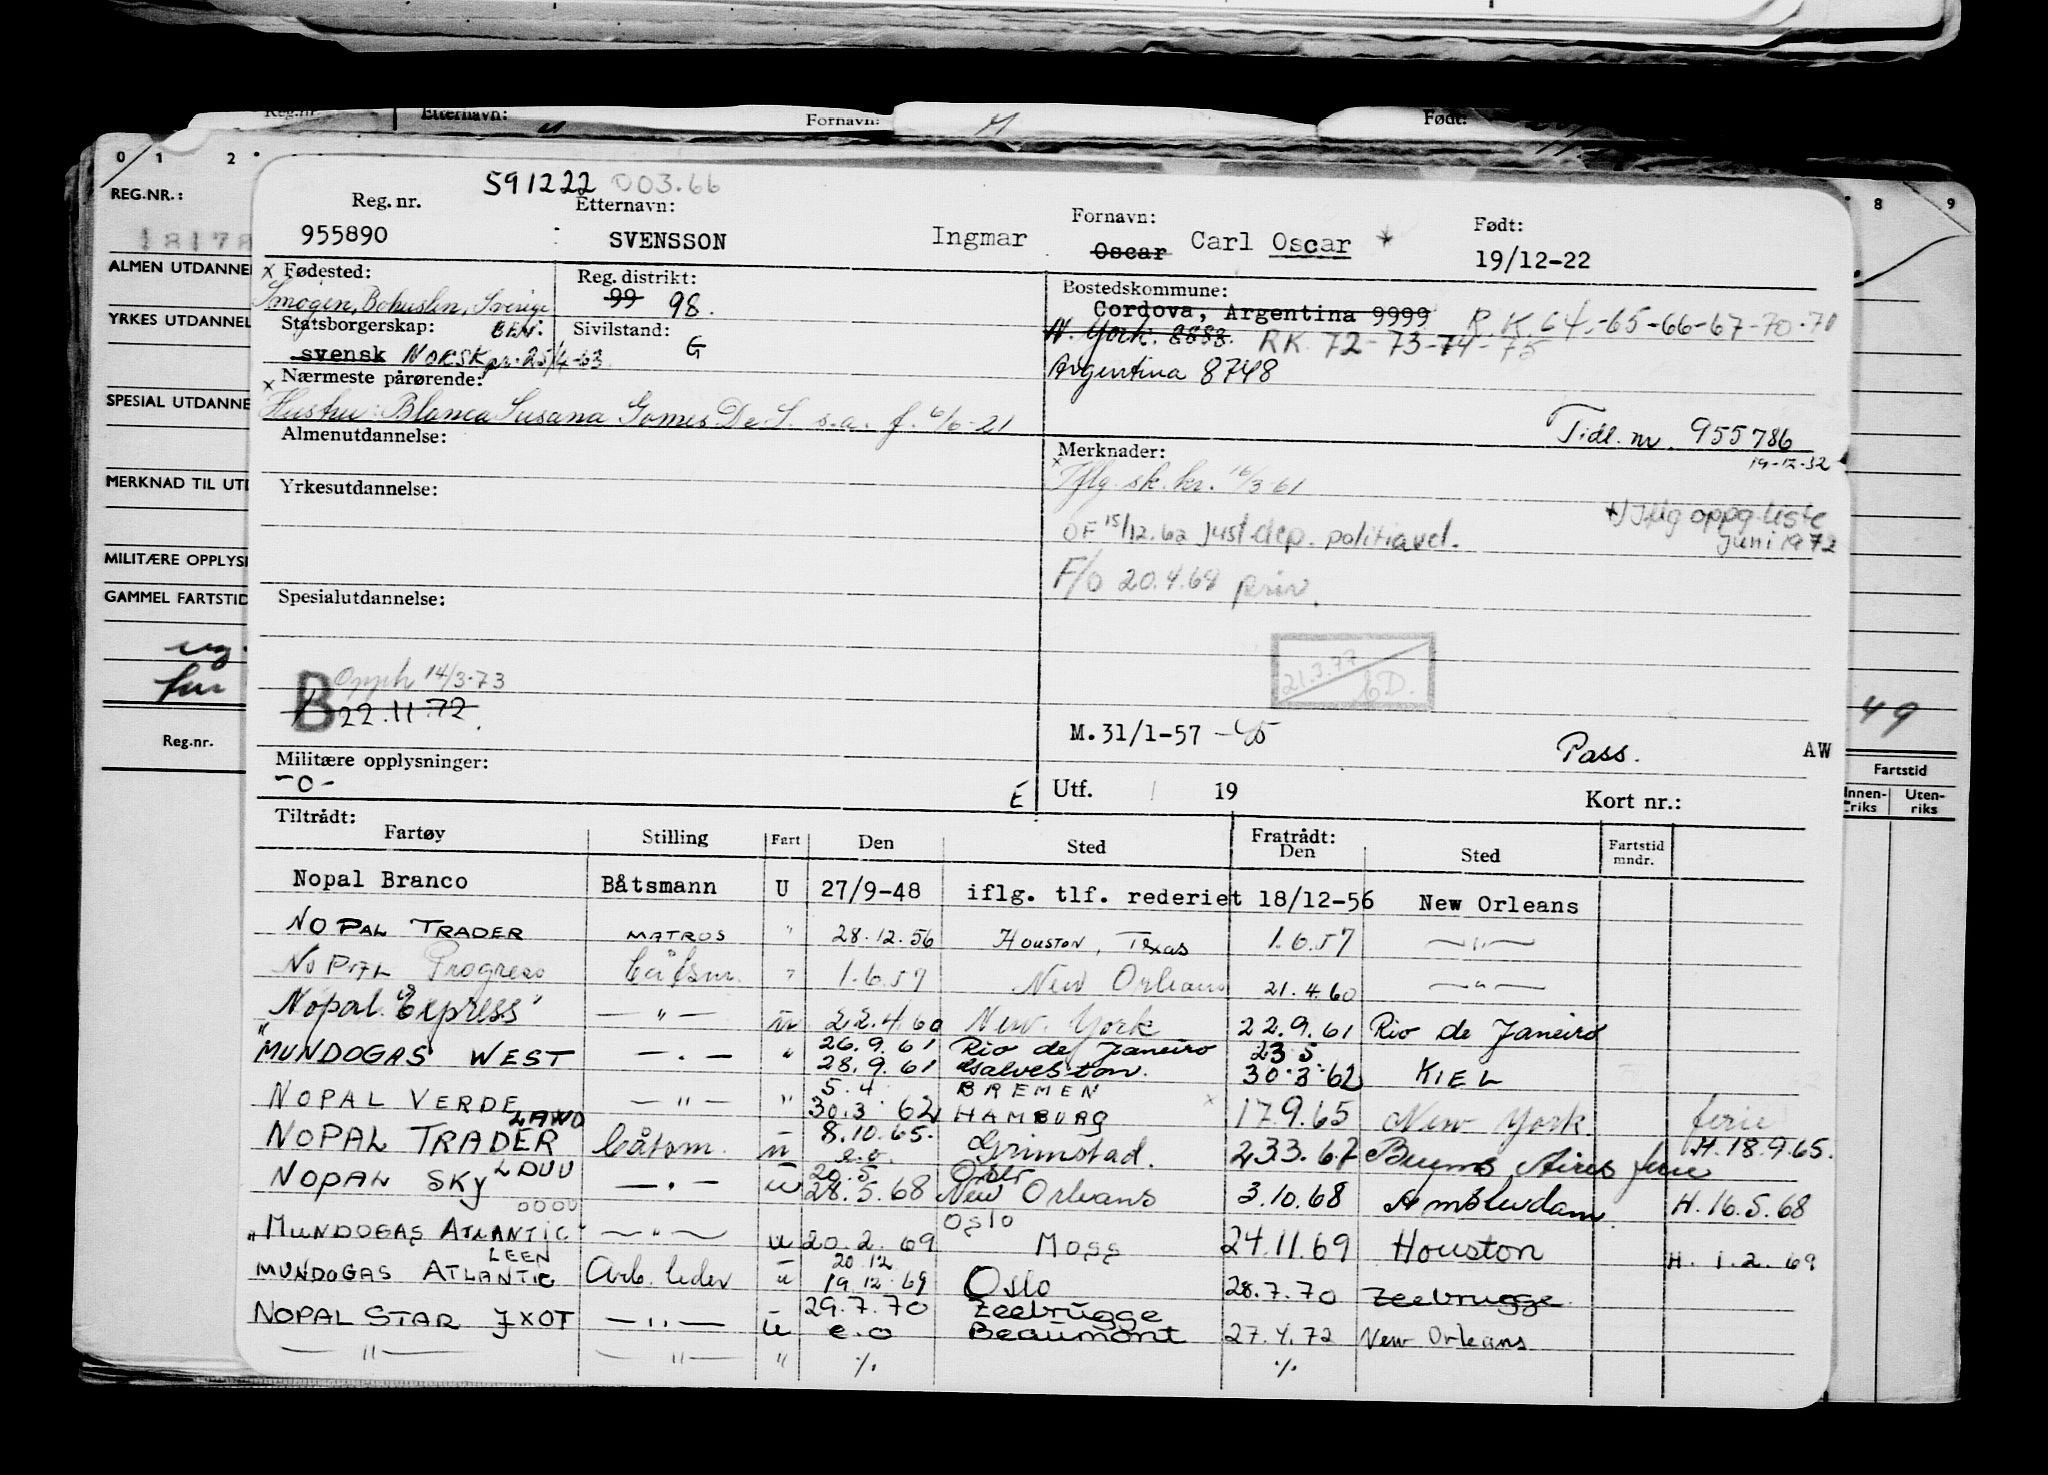 Reg.nr. Etternavn: Fornavn: Født:
0 1 2 8 9
REG.NR.:
18178
ALMEN UTDANNE
YRKES UTDANNEL
SPESIAL UTDANNE
MERKNAD TIL UTD
MILITÆRE OPPLYS
GAMMEL FARTSTID
49
Reg.nr.
Fartstid
Innen-riks Uten-riks
591222 003.66
Reg. nr. Etternavn: Fornavn: Født:
955890 SVENSSON Ingmar Oscar Carl Oscar * 19/12-22
x Fødested: Reg. distrikt: Bostedskommune:
Smögen, Bohuslen, Sverige 99 98. Cordova, Argentina 9999 R K. 64.-65-66-67-70-71
Statsborgerskap: Bev. Sivilstand: N. York. 8888. RK. 72-73-74-75
svensk NORSK pr. 25/4-63 G Argentina 8748
x Nærmeste pårørende:
Hustru: Blanca Susana Gomes De S. s.a. f. 6/6-21 Tidl. nr. 955786
Almenutdannelse: Merknader: 19-12-32
x Iflg. sk. kr. 16/3-61
Yrkesutdannelse: *) Iflg oppg. liste
juni 1972
OF 15/12.62 Just dep. politiavd.
F/O 20.4.68 priv.
Spesialutdannelse:
B Opph 14/3-73 21.3.77
22.11.72
M.31/1-57 Pass. AW
Militære opplysninger:
-0- E Utf. 19 Kort nr.:
Tiltrådt: Fratrådt:
Fartøy Stilling Fart Den Sted Den Sted Fartstid mndr.
Nopal Branco Båtsmann U 27/9-48 iflg. tlf. rederiet 18/12-56 New Orleans
NOPAL TRADER MATROS " 28.12.56 HOUSTON, TEXAS 1.6.57 —"—
NOPAL Progreso båtsm. " 1.6.57 New Orleans 21.4.60 —"—
Nopal "Express" —"— u 22.4.60 New. York 22.9.61 Rio de Janeiro
26.9.61 Rio de Janeiro 23 5
"MUNDOGAS WEST —"— " 28.9.61 Galveston. 30.3.62 KIEL
5.4 BREMEN
NOPAL VERDE —"— " 30.3.62 HAMBURG 17.9.65 New York. ferie
LAWO 8.10.65.
NOPAL TRADER båtsm. u e.o. Grimstad. 233.67 Buenos Aires ferie H.18.9.65.
LDUU 20.5 Oslo
NOPAL SKY —"— u 28.5.68 New Orleans 3.10.68 Amsterdam. H. 16.5.68
OOOU OSLO
"MUNDOGAS ATLANTIC" —"— u 20.2.69 Moss 24.11.69 Houston H. 1.2.69
LEEN 20.12
MUNDOGAS ATLANTIC Arb. leder u 19.12.69 Oslo 28.7.70 Zeebrugge
29.7.70 Zeebrugge
NOPAL STAR JXOT —"— u e.o Beaumont 27.4.72 New Orleans
—"— —"— " %. %.